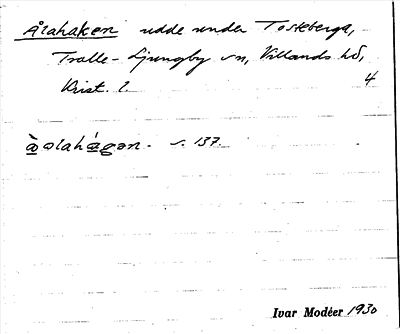 Ålahaken udde under Tosteberga,
Tralle-Ljungby sn, Villands hd,
Krist. l. 4
å̀olahágən. s. 137.
Ivar Modéer 1930